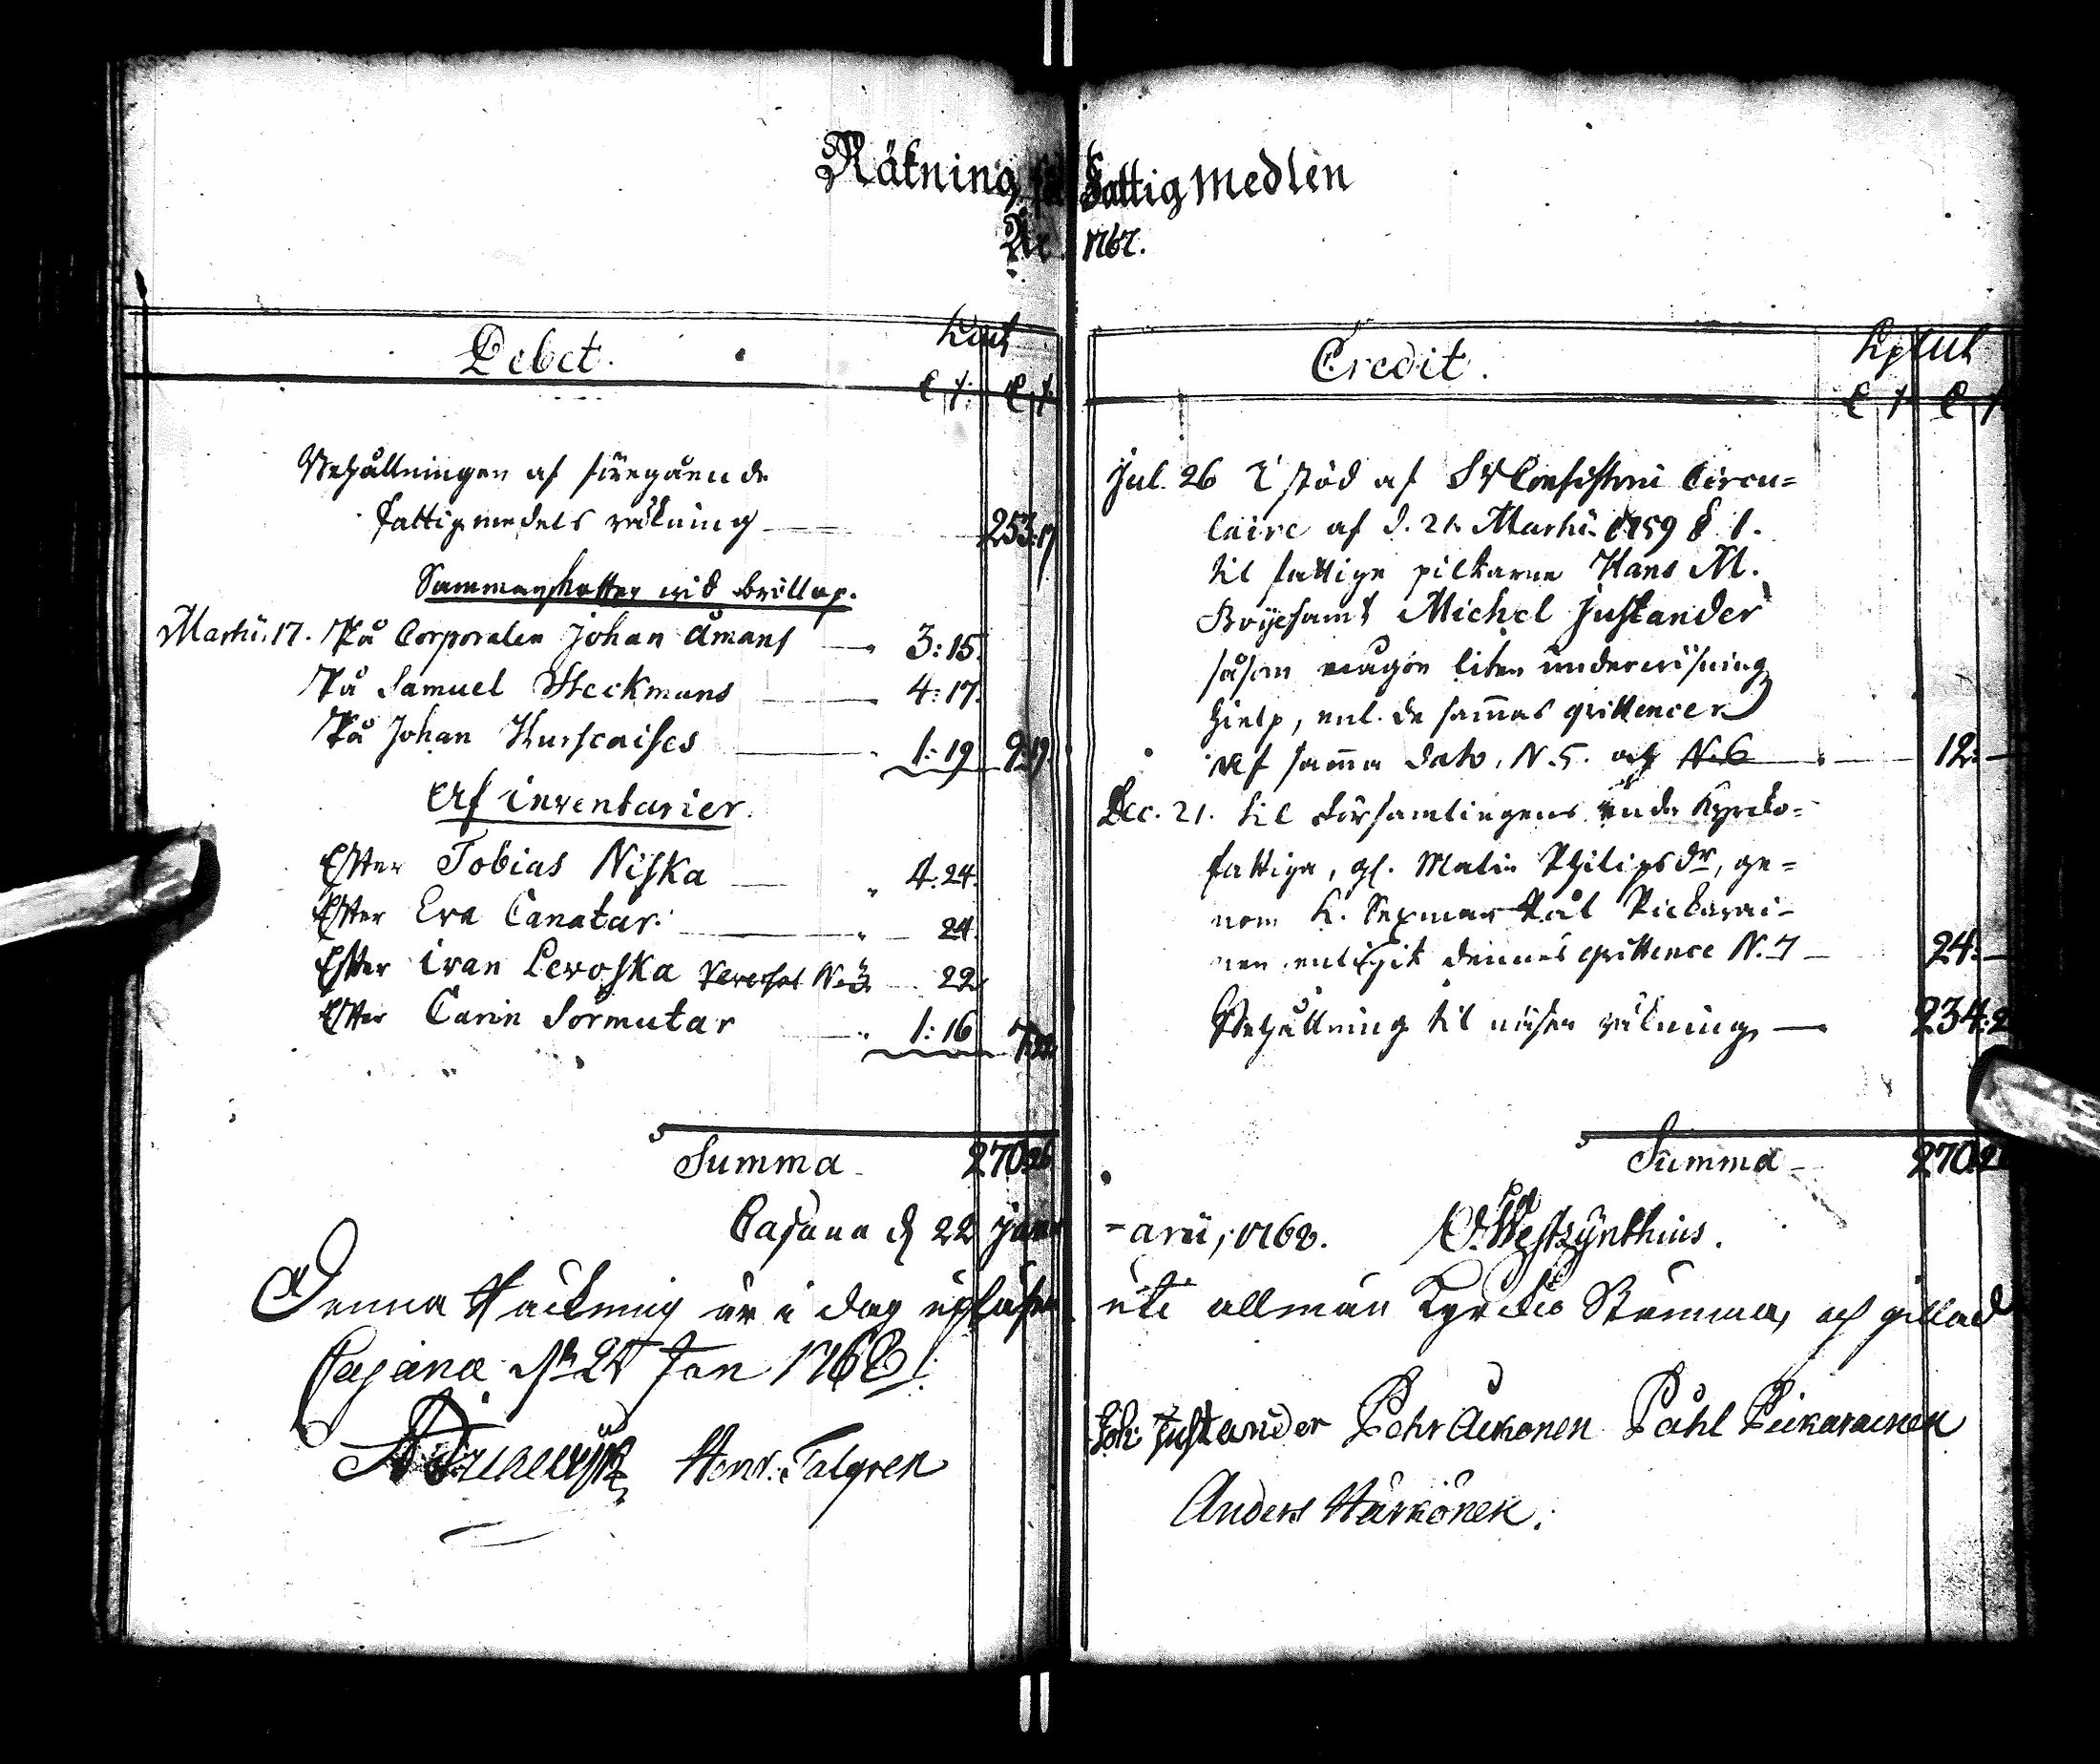 Räkning för Fattigmedlen
År 1767.
Debet.
Behållningen af föregående
fattigmedels räkning 253:17
Sammanskotter wid bröllop.
Martii. 17. På Corporalen Johan Åmans 3:15.
På Samuel Heckmans 4:17.
På Johan Kurscaises 1:19 9:19.
Af inventarier.
Efter Tobias Niska 4.24.
Efter Eva Canatar: 24.
Efter Ivan Levoska 22
Efter Carin Sormutar 1:16 7:22
Summa 270:26
Credit.
Jul. 26 I stöd af Consistorii Circu=
laire af d. 21. Martii. 1759 § 1.
til fattige pilkarne Hans M.
Boije samt Michel Justander
såsom någon liten underwisning
hielp, enl. de sammas qvittencer
af samma dato, N. 5. och N. 6 12:
Dec. 21. til Församlingens Kyrko=
fattiga, gl. Malin Philipsdr, ge=
nom K. Sexman Pål Pickarai-
nen enligit dennes qvittence N. 7 24:
Behållning til nästa räkning 234:2
Summa 270:2
Cajana d 22 Janu-arii, 1768. Westzÿnthius.
Denna Räckning är i dag upläsen uti allmän Kyrckio Stämma, och gillad
Cajana d. 24 Jan 1768
Henr. Falgren Joh: Justander Pehr Ackonen Påhl Pickarainen
Anders Härkönen.